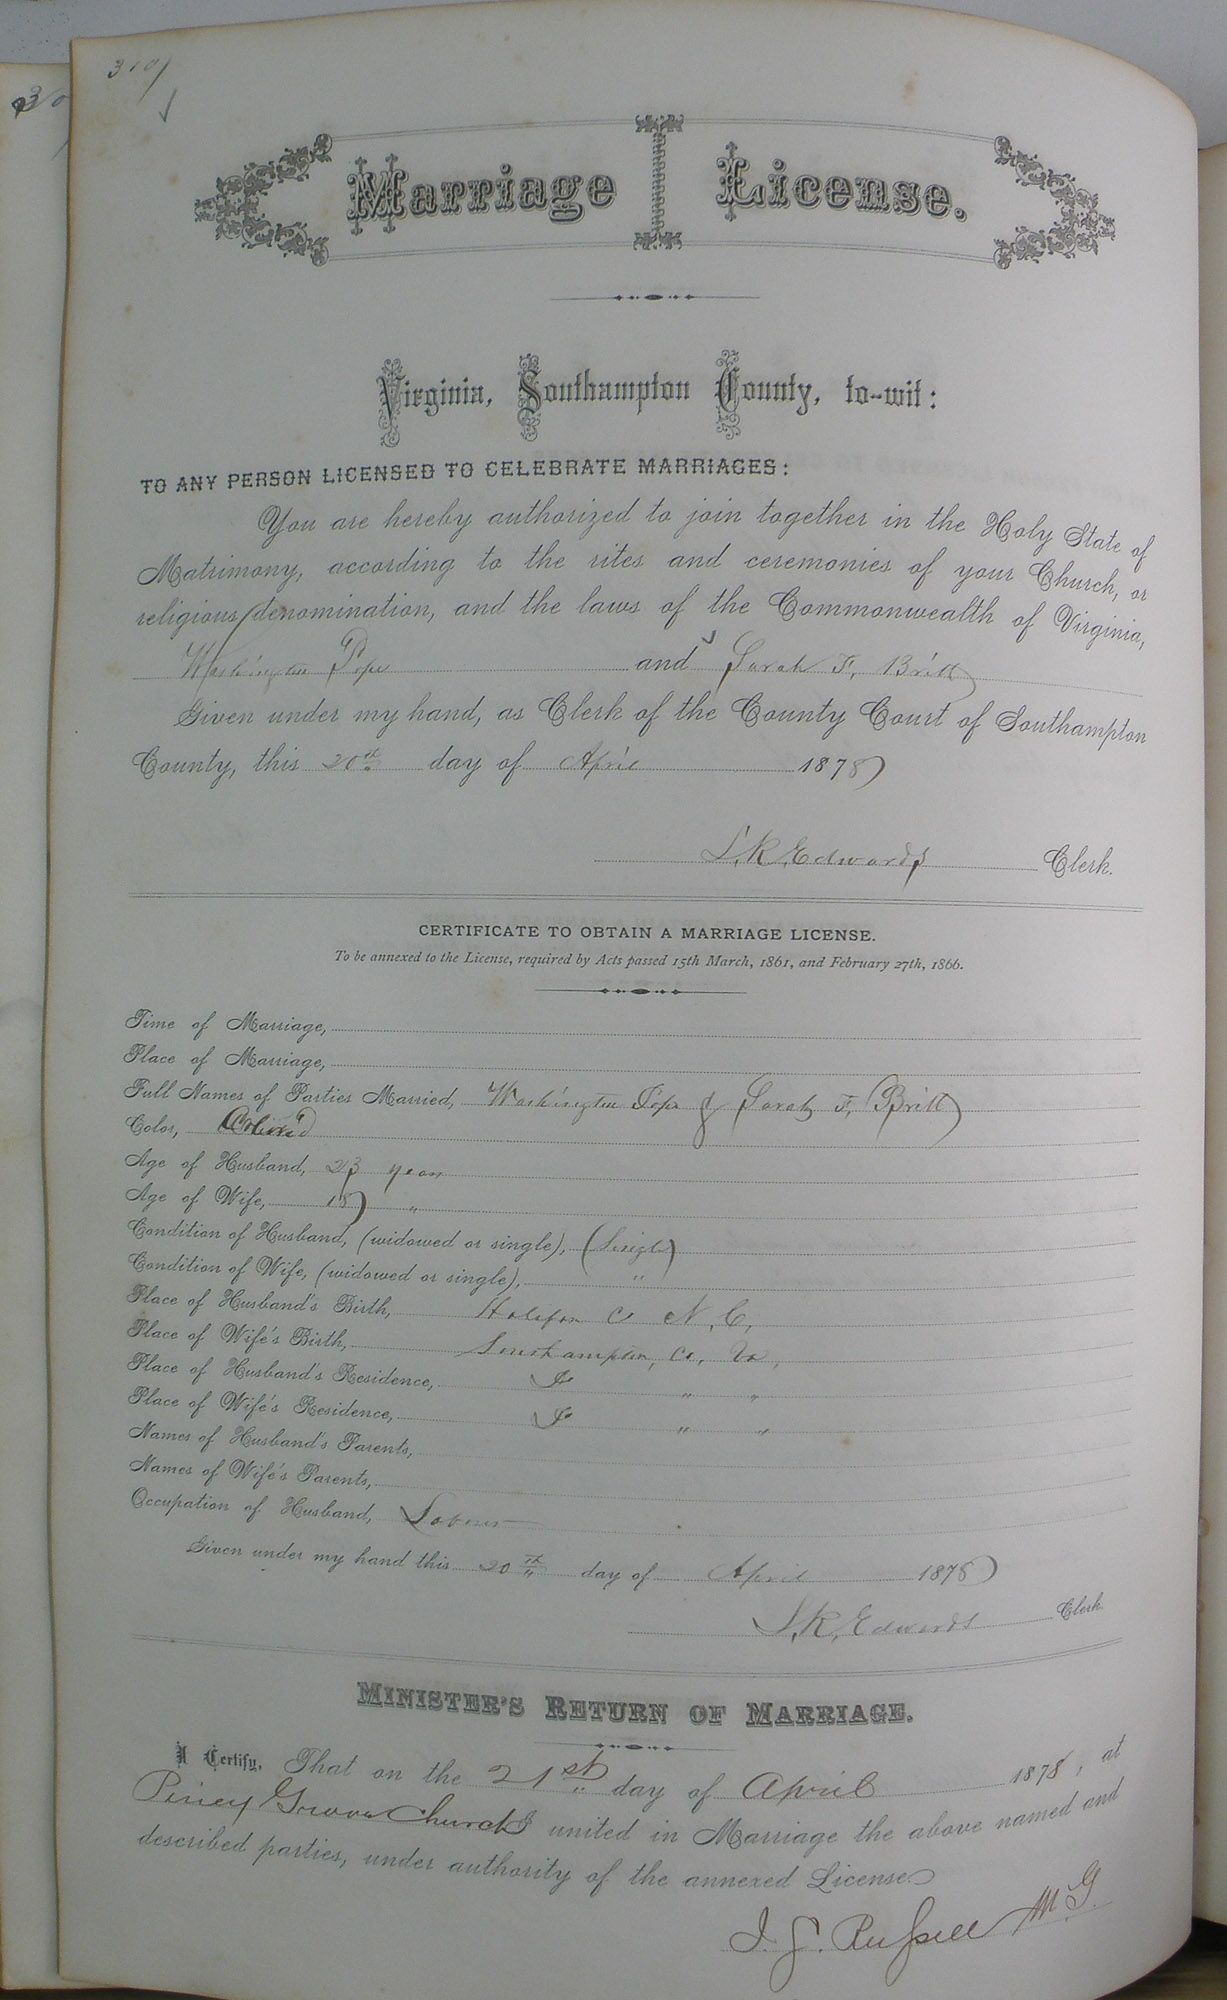 310
Marriage License.
Virginia, Southampton County, to-wit:
TO ANY PERSON LICENSED TO CELEBRATE MARRIAGES:
You are hereby authorized to join together in the Holy State of
Matrimony, according to the rites and ceremonies of your Church, or
religious denomination, and the laws of the Commonwealth of Virginia,
Washington Pope and Sarah F. Britt
Given under my hand, as Clerk of the County Court of Southampton
County, this 20th day of April 1878
L. R. Edwards Clerk.
CERTIFICATE TO OBTAIN A MARRIAGE LICENSE.
To be annexed to the License, required by Acts passed 15th March, 1861, and February 27th, 1866.
Time of Marriage,
Place of Marriage,
Full Names of Parties Married, Washington Pope & Sarah F. Britt
Color, Colored
Age of Husband, 23 years
Age of Wife, 18 "
Condition of Husband, (widowed or single), (Single)
Condition of Wife, (widowed or single), "
Place of Husband's Birth, Halifax Co N. C.
Place of Wife's Birth, Southampton, Co, Va,
Place of Husband's Residence, " "
Place of Wife's Residence, " "
Names of Husband's Parents,
Names of Wife's Parents,
Occupation of Husband, Laborer
Given under my hand this 20th day of April 1878
L. R. Edwards Clerk
MINISTER'S RETURN OF MARRIAGE.
I Certify, That on the 21st day of April 1878, at
Piney Grove Church I united in Marriage the above named and
described parties, under authority of the annexed License
J. G. Russell M G.